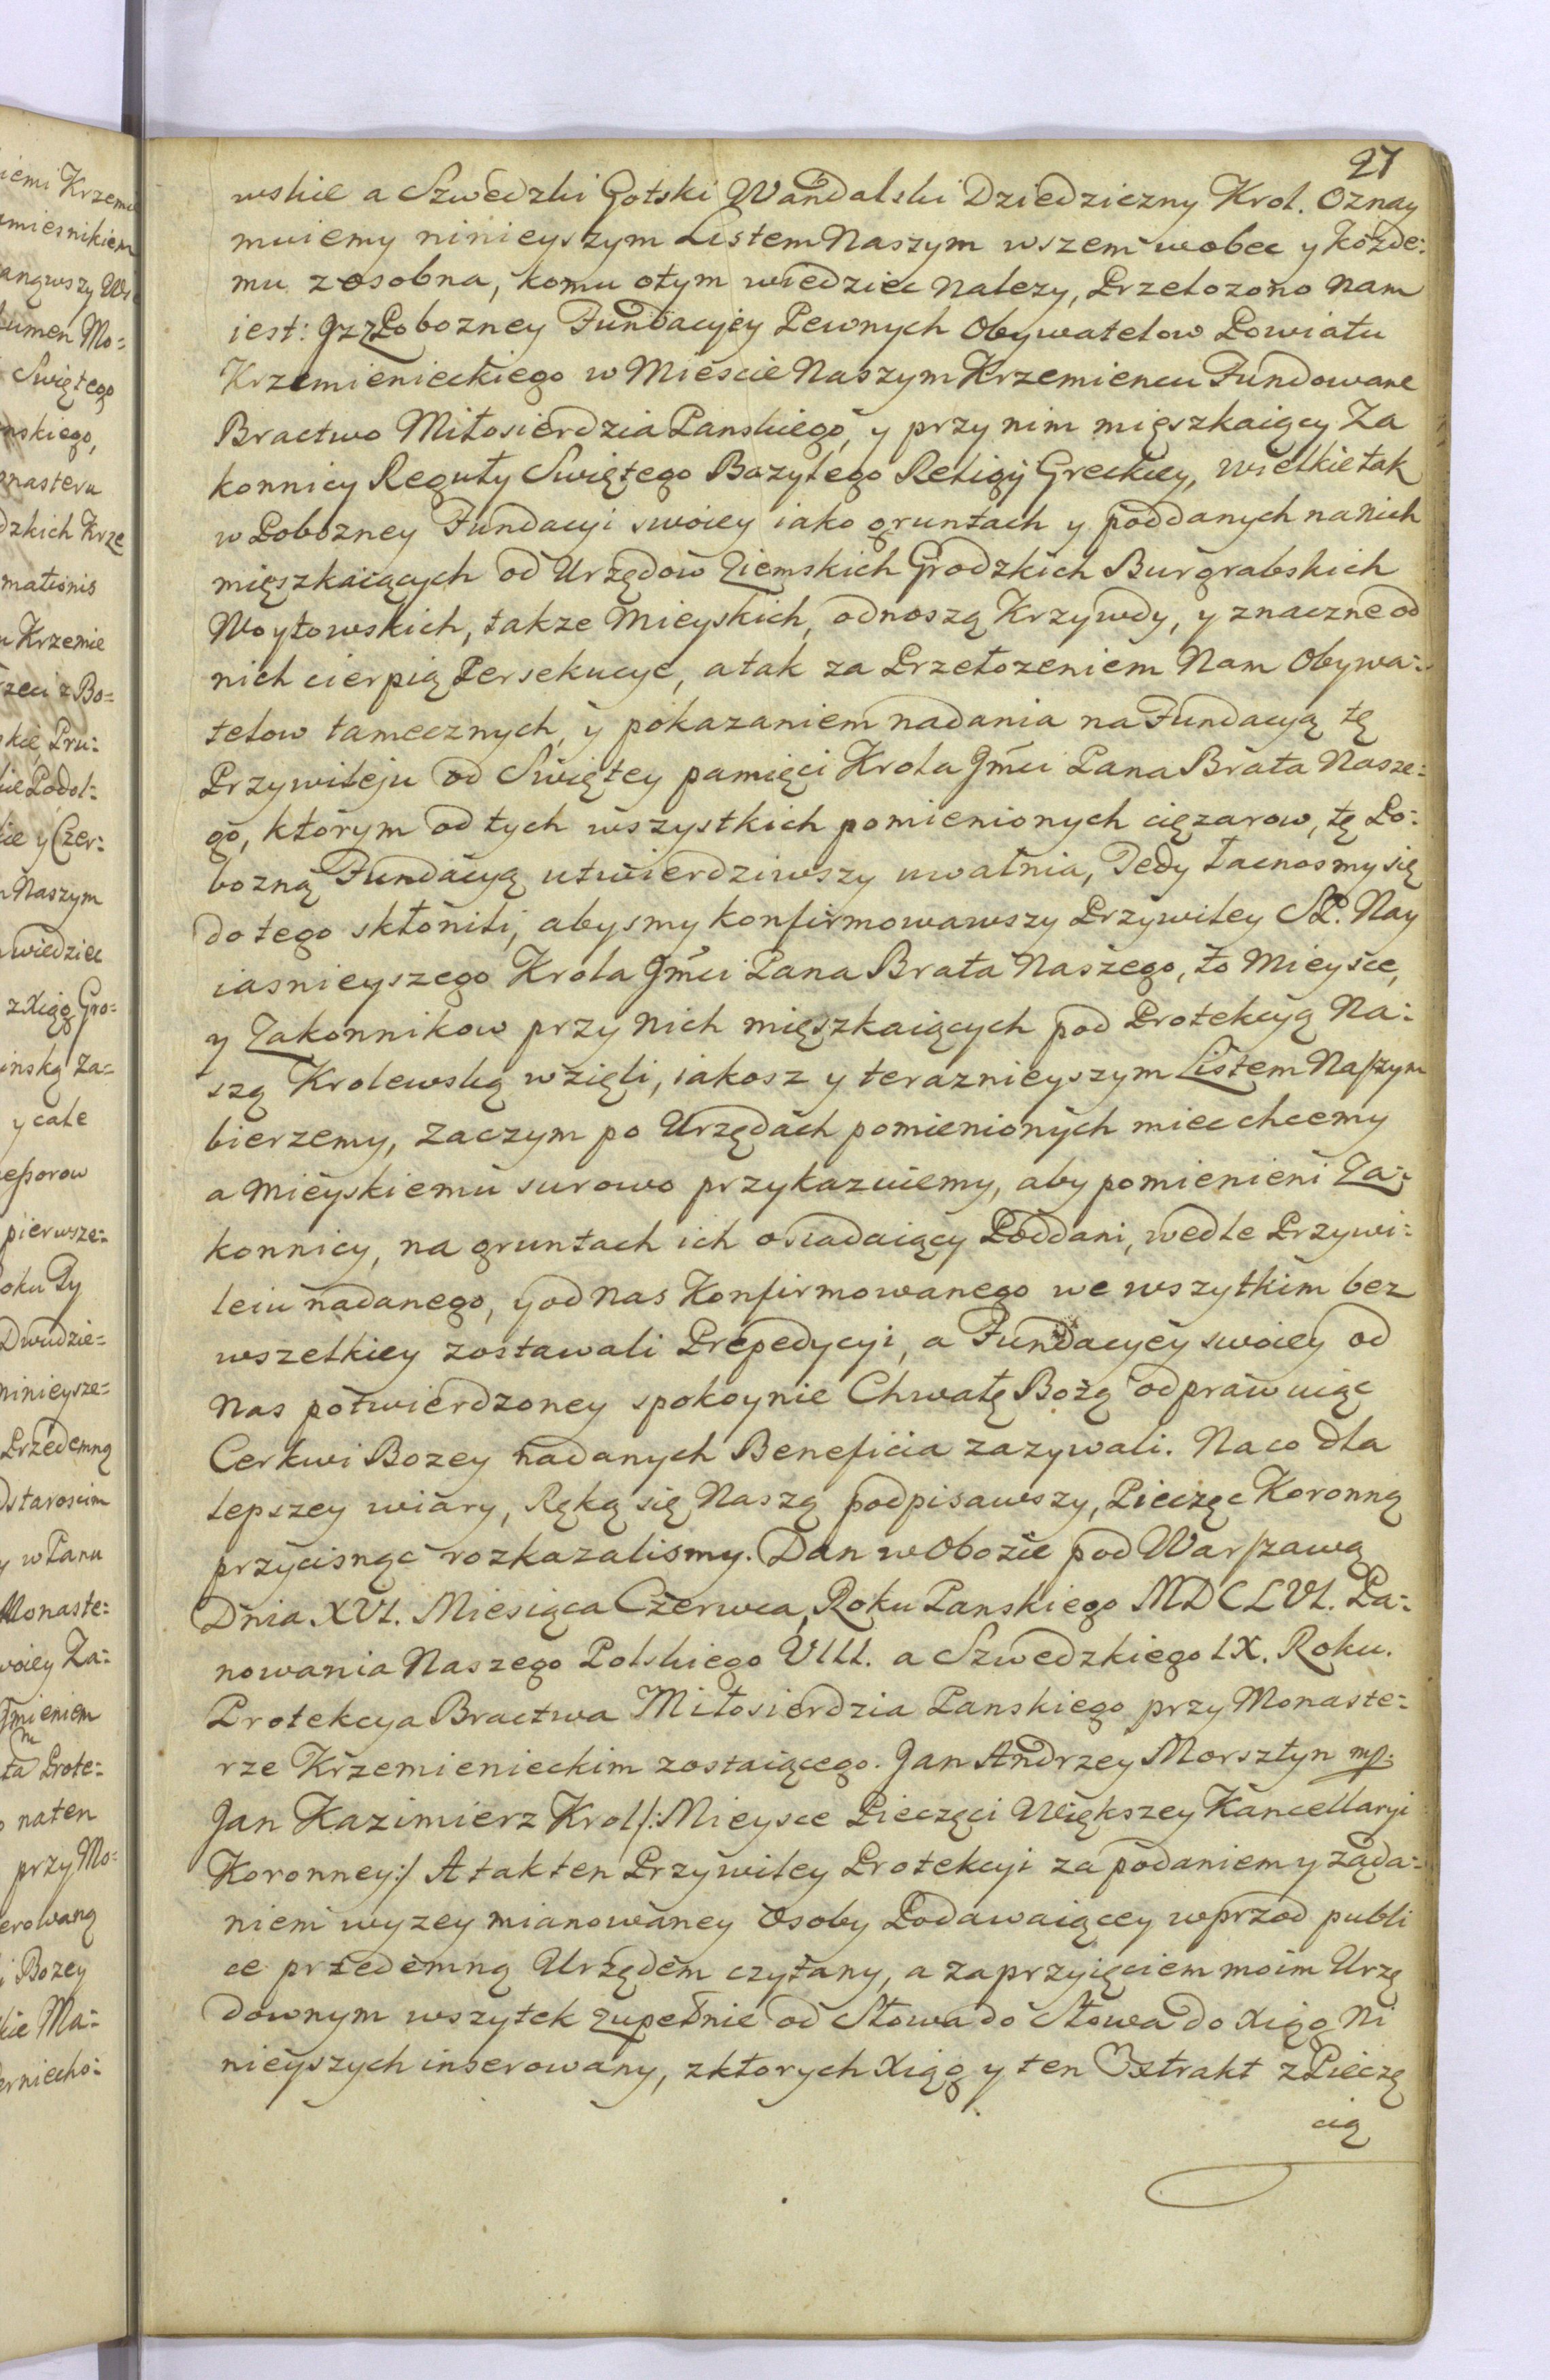 27
wskie a Szwedzki Gotski Wandalski Dziedziczny Krol. Oznay
muiemy ninieyszym Listem Naszym wszem wobec y kożde:
mu zosobna, komu otym wiedziec Nalezy, Przelozono Nam
iest: Jz z Pobozney Fundacyey Pewnych Obywatelow Powiatu
Krzemienieckiego w Miescie Naszym Krzemiencu Fundowane
Bractwo Miłosierdzia Panskiego, y przy nim mięszkaiący Za
konnicy Reguły Swiętego Bazylego Religij Greckiey, wielkie tak
w Pobozney Fundacyi swoiey iako gruntach y poddanych na nich
mięszkaiących od Urzędow Ziemskich Grodzkich Burgrabskich
Woytowskich, takze Mieyskich, odnoszą Krzywdy, y znaczne od
nich cierpią Persekucye, a tak za Przełozeniem Nam Obywa:
telow tamecznych, y pokazaniem nadania na Fundacyą tę
Przywileju od Swiętey pamięci Krola Jmci Pana Brata Nasze:
go, ktorym od tych wszystkich pomienionych cięzarow, tę Po:
bozną Fundacyą utwierdziwszy uwalnia, Tedy łacnosmy się
do tego skłonili, abysmy konfirmowawszy Przywiley SP. Nay
iasnieyszego Krola Jmci Pana Brata Naszego, to Mieysce,
y Zakonnikow przy nich mięszkaiących pod Protekcyą Na:
szą Krolewską wzięli, iakosz y teraznieyszym Listem Naszym
bierzemy, Zaczym po Urzędach pomienionych miec chcemy
a Mieyskiemu surowo przykazuiemy, aby pomienieni Za:
konnicy, na gruntach ich osiadaiący Poddani, wedle Przywi:
leiu nadanego, y od nas Konfirmowanego we wszytkim bez
wszelkiey zostawali Prepedycyi, a Fundacyey swoiey od
Nas potwierdzoney spokoynie Chwałę Bożą odprawuiąc
Cerkwi Bozey nadanych Beneficia zazywali. Na co dla
lepszey wiary, Ręką się Naszą podpisawszy, Pieczęc Koronną
przycisnąc rozkazalismy. Dan w Obozie pod Warszawą
Dnia XVI. Miesiąca Czerwca, Roku Panskiego MDCLVI. Pa:
nowania Naszego Polskiego VIII. a Szwedzkiego IX. Roku.
Protekcya Bractwa Miłosierdzia Panskiego przy Monaste:
rze Krzemienieckim zostaiącego. Jan Andrzey Morsztyn mp.
Jan Kazimierz Krol /: Mieysce Pieczęci Większey Kancellaryi
Koronney :/ A tak ten Przywiley Protekcyi za podaniem y żąda:
niem wyzey mianowaney Osoby Podawaiącey wprzod publi
ce przedemną Urzędem czytany, a za przyięciem moim Urzę
downym wszytek zupełnie od Słowa do Słowa do Xiąg Ni
nieyszych inserowany, z ktorych Xiąg y ten Extrakt z Pieczę
cią